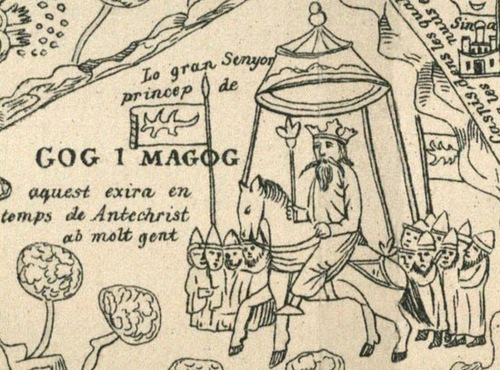 Lo gran Senyor
princep de
GOG I MAGOG
aquest exira en
temps de Antechrist
ab molt gent